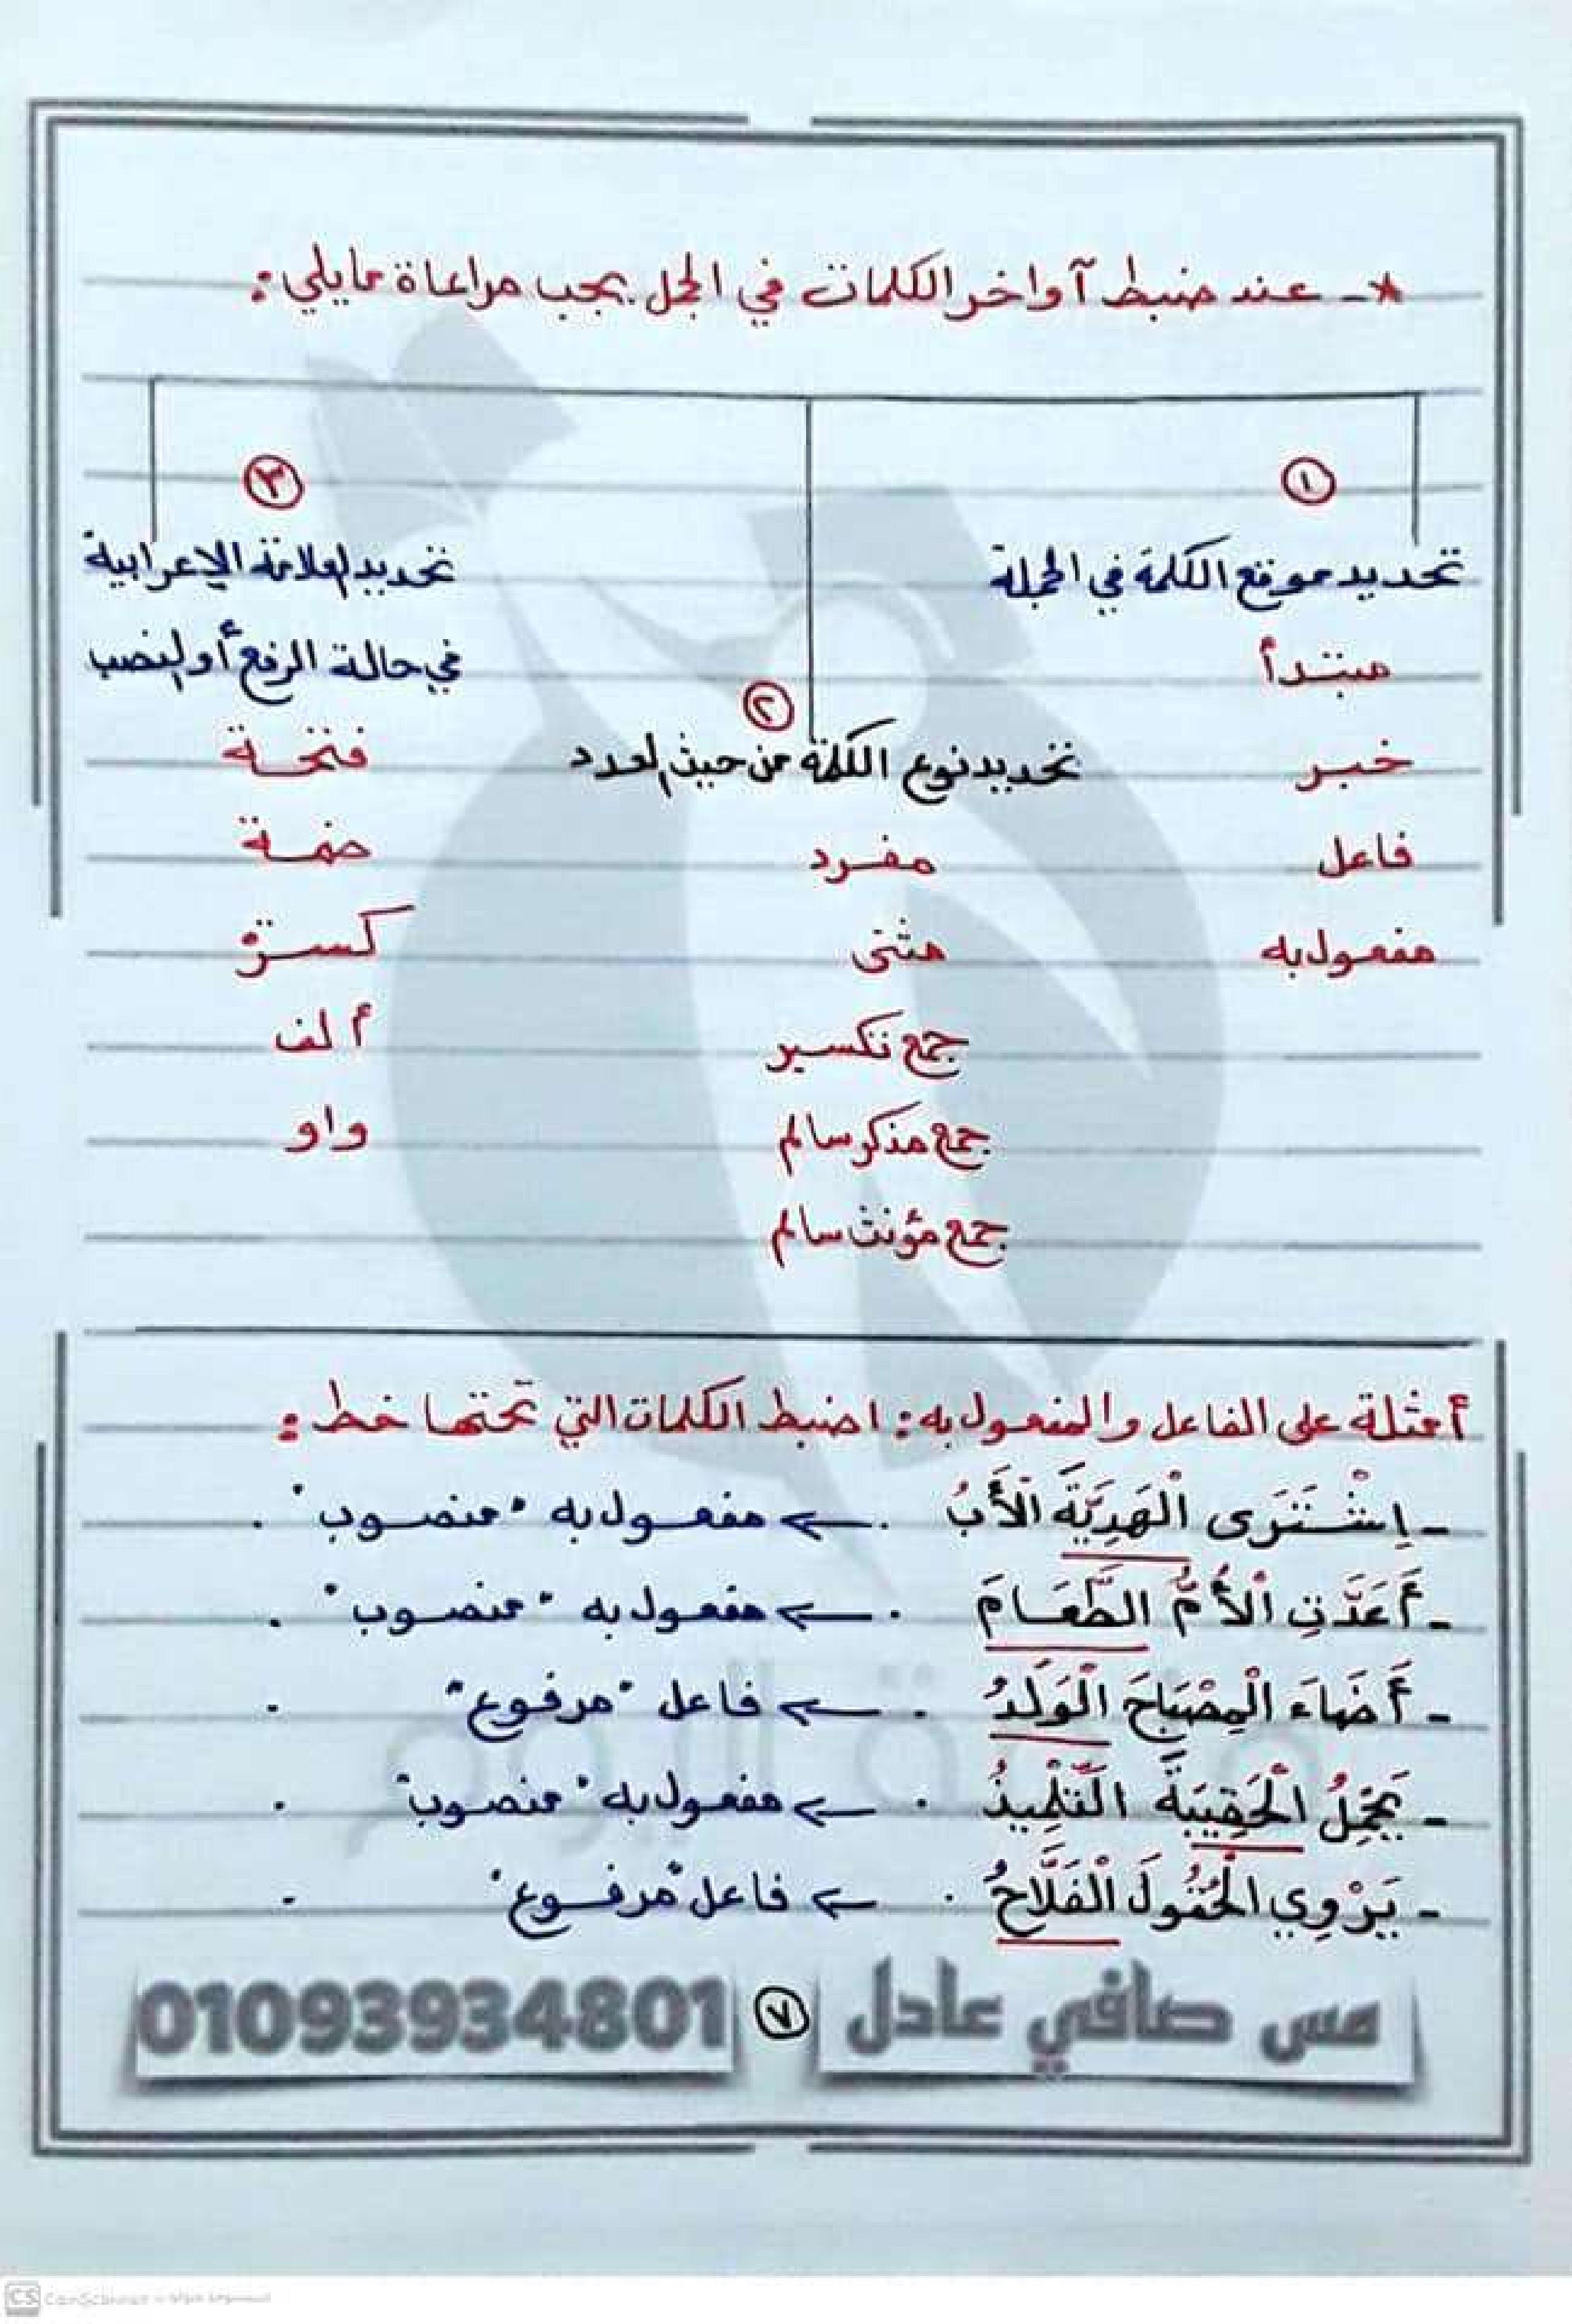 *- عند ضبط آواخر الكلمات في الجمل يجب مراعاة مايلي:
١
تحديد موقع الكلمة في الجملة
مبتدأ
خبر
فاعل
مفعول به
٢
تحديد نوع الكلمة من حيث العدد
مفرد
مثنى
جمع تكسير
جمع مذكر سالم
جمع مؤنث سالم
٣
تحديد العلامة الإعرابية
في حالة الرفع أو النصب
فتحة
ضمة
كسرة
ألف
واو
أمثلة على الفاعل والمفعول به: اضبط الكلمات التي تحتها خط:
- اِشْتَرَى الْهَدِيَّةَ الْأَبُ . ← مفعول به "منصوب" .
- أَعَدَّتِ الْأُمُّ الطَّعَامَ . ← مفعول به "منصوب" .
- أَضَاءَ الْمِصْبَاحَ الْوَلَدُ . ← فاعل "مرفوع" .
- يَحْمِلُ الْحَقِيبَةَ التِّلْمِيذُ . ← مفعول به "منصوب" .
- يَرْوِي الْحُقُولَ الْفَلَّاحُ . ← فاعل "مرفوع" .
مس صافي عادل ٧ 01093934801
CS CamScanner